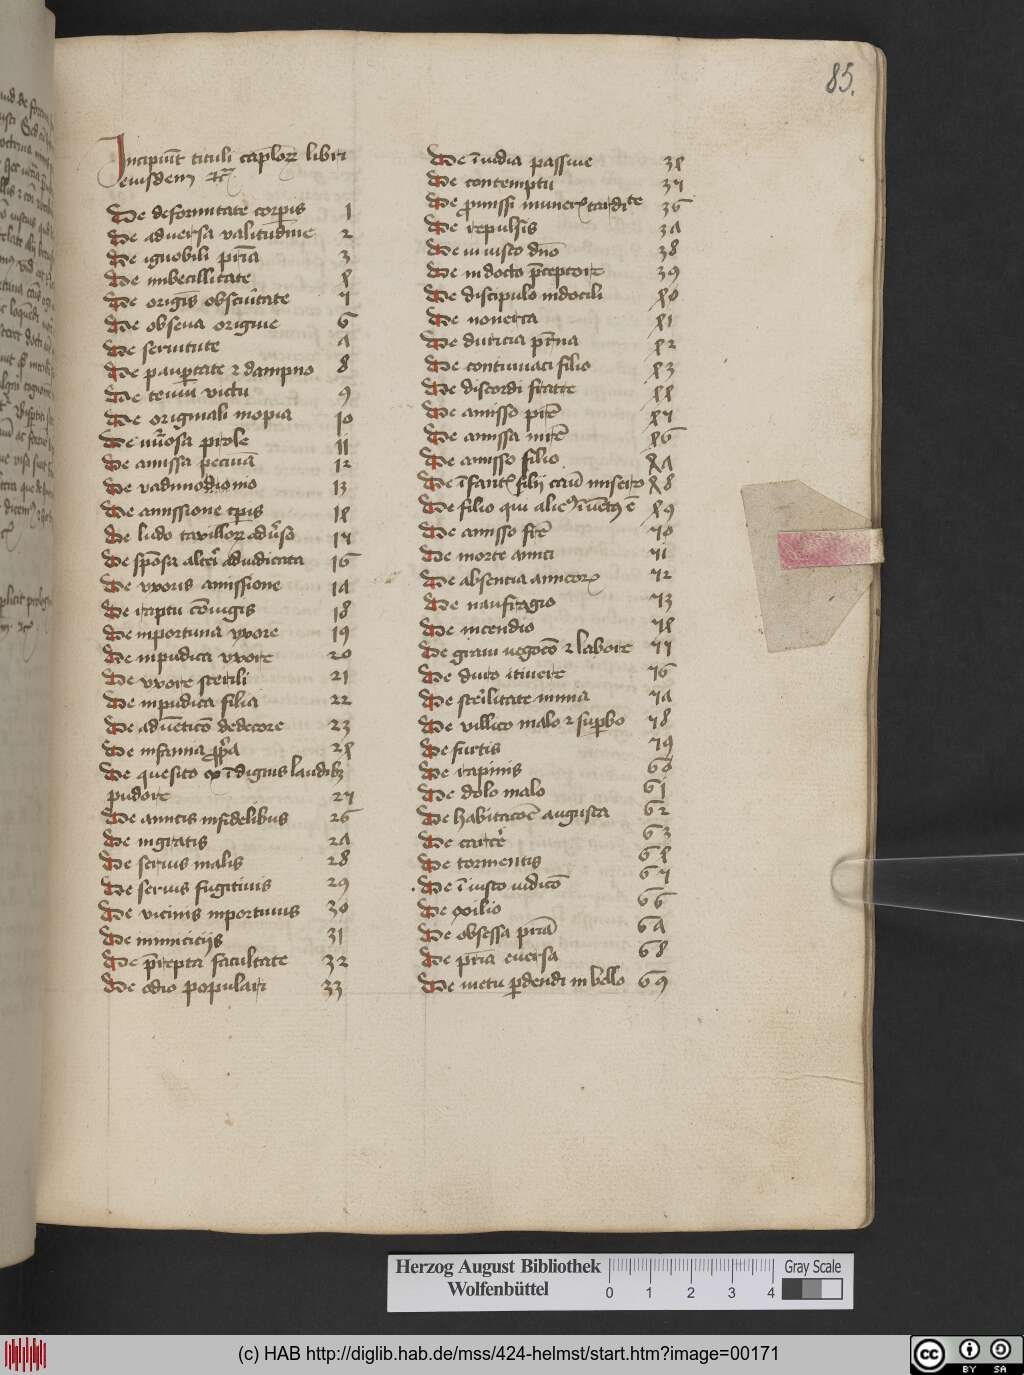 85.
Incipiu͞t tituli capłoꝝ libri
eiusdem ꝛc͞
De deformitate corꝑis 1
De aduersa valitudi͞ne 2
De ignobili pr͞ia 3
De imbecillitate 4
De origi͞s obscu͞itate 5
De obscua origine 6
De seruitute 7
De pauꝑtate ⁊ dampno 8
De tenui͞ victu 9
De originali inopia 10
De nu͞osa prole 11
De amissa pecu͞ia 12
De vadimodionio 13
De amissione tꝑis 14
De ludo taxilloꝝ adu͞so 15
De spo͞sa alte͞i adiudicata 16
De vxoris amissione 17
De raptu co͞iugis 18
De inportuna vxore 19
De inpudica vxore 20
De vxore sterili 21
De inpudica filia 22
De adue͞tico͞ dedecore 23
De infamia ꝓp͞a 24
De quesito ex i͞dignis laudibꝫ
pudore 25
De amicis infidelibus 26
De ingratis 27
De seruis malis 28
De seruis fugitiuis 29
De vicinis inportunis 30
De inimiciciis 31
De p͞repta facultate 32
De odio populari 33
De i͞uidia passiue 34
De contemptu 35
De promissi muneꝝ tardi te 36
De repulsis 37
De in iusto dn͞o 38
De indocto p͞ceptore 39
De discipulo indocili 40
De nouerca 41
De duricia pr͞na 42
De contumaci filio 43
De discordi fratre 44
De amisso pr͞e 45
De amissa mr͞e 46
De amisso filio 47
De i͞fantꝭ filij casu͞ misero 48
De filio qui alieꝰ i͞uentꝰ e͞ 49
De amisso fr͞e 50
De morte amici 51
De absentia amicoꝝ 52
De naufragio 53
De incendio 54
De graui negoco͞ ⁊ labore 55
De duro itinere 56
De ste͞ilitate nimia 57
De villico malo ⁊ suꝑbo 58
De furtis 59
De rapinis 60
De dolo malo 61
De habitaco͞e angusta 62
De carce͞ 63
De tormentis 64
De i͞iusto iudico͞ 65
De exilio 66
De obsessa pr͞ia 67
De pr͞ia euersa 68
De metu ꝑdendi in bello 69
Herzog August Bibliothek
Wolfenbüttel
0 1 2 3 4
Gray Scale
(c) HAB http://diglib.hab.de/mss/424-helmst/start.htm?image=00171
cc BY SA